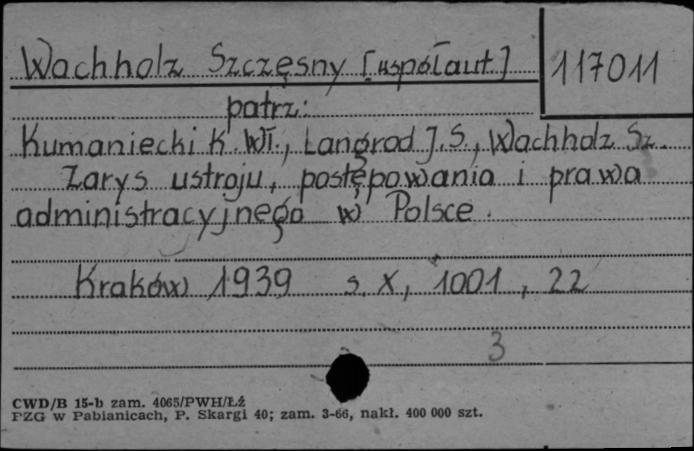 Wachholz Szczęsny [współaut.] 117011
patrz:
Kumaniecki K. Wł., Langrod J.S., Wachholz Sz.
Zarys ustroju, postępowania i prawa
administracyjnego w Polsce.
Kraków 1939 s. X, 1001, 22
3
CWD/B 15-b zam. 4065/PWH/Łź
PZG w Pabianicach, P. Skargi 40; zam. 3-66, nakł. 400 000 szt.